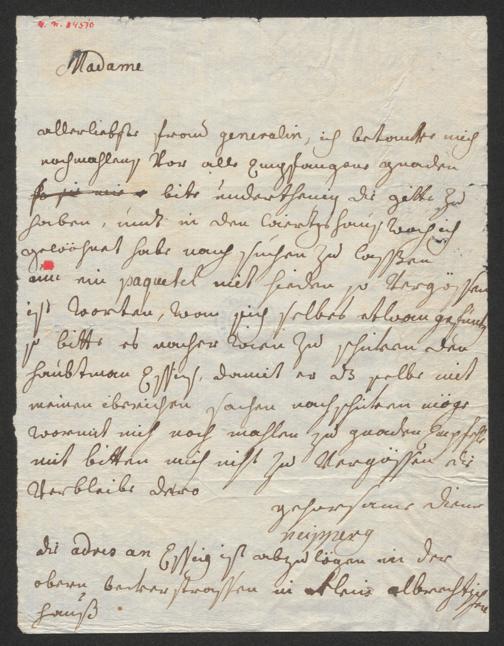 H. N. 84570
Madame
allerliebste frau generalin, ich betanke mich
nochmahlens vor alle Empfangene gnaden
bite underthenig die gitte zu
haben, undt in den wirtshaus wo ich
gewohnet habe nach suchen zu lassen
ein paquetel mit so vergössen
ist worden, wan sich selbes etwan
so bitte es nacher wien zu schiken den
haubtman Essig, damit er dz selbe mit
meinen ibrichen sachen nachschiken möge
wormit mich noch mahlen zu gnaden Empfehle
mit bitten mich nicht zu vergössen die
verbleibe dero
gehorsame diene
neipperg
die adres an Essig ist abzulögen in der
obern beckerstrassen in klein albrechtischen
hauß